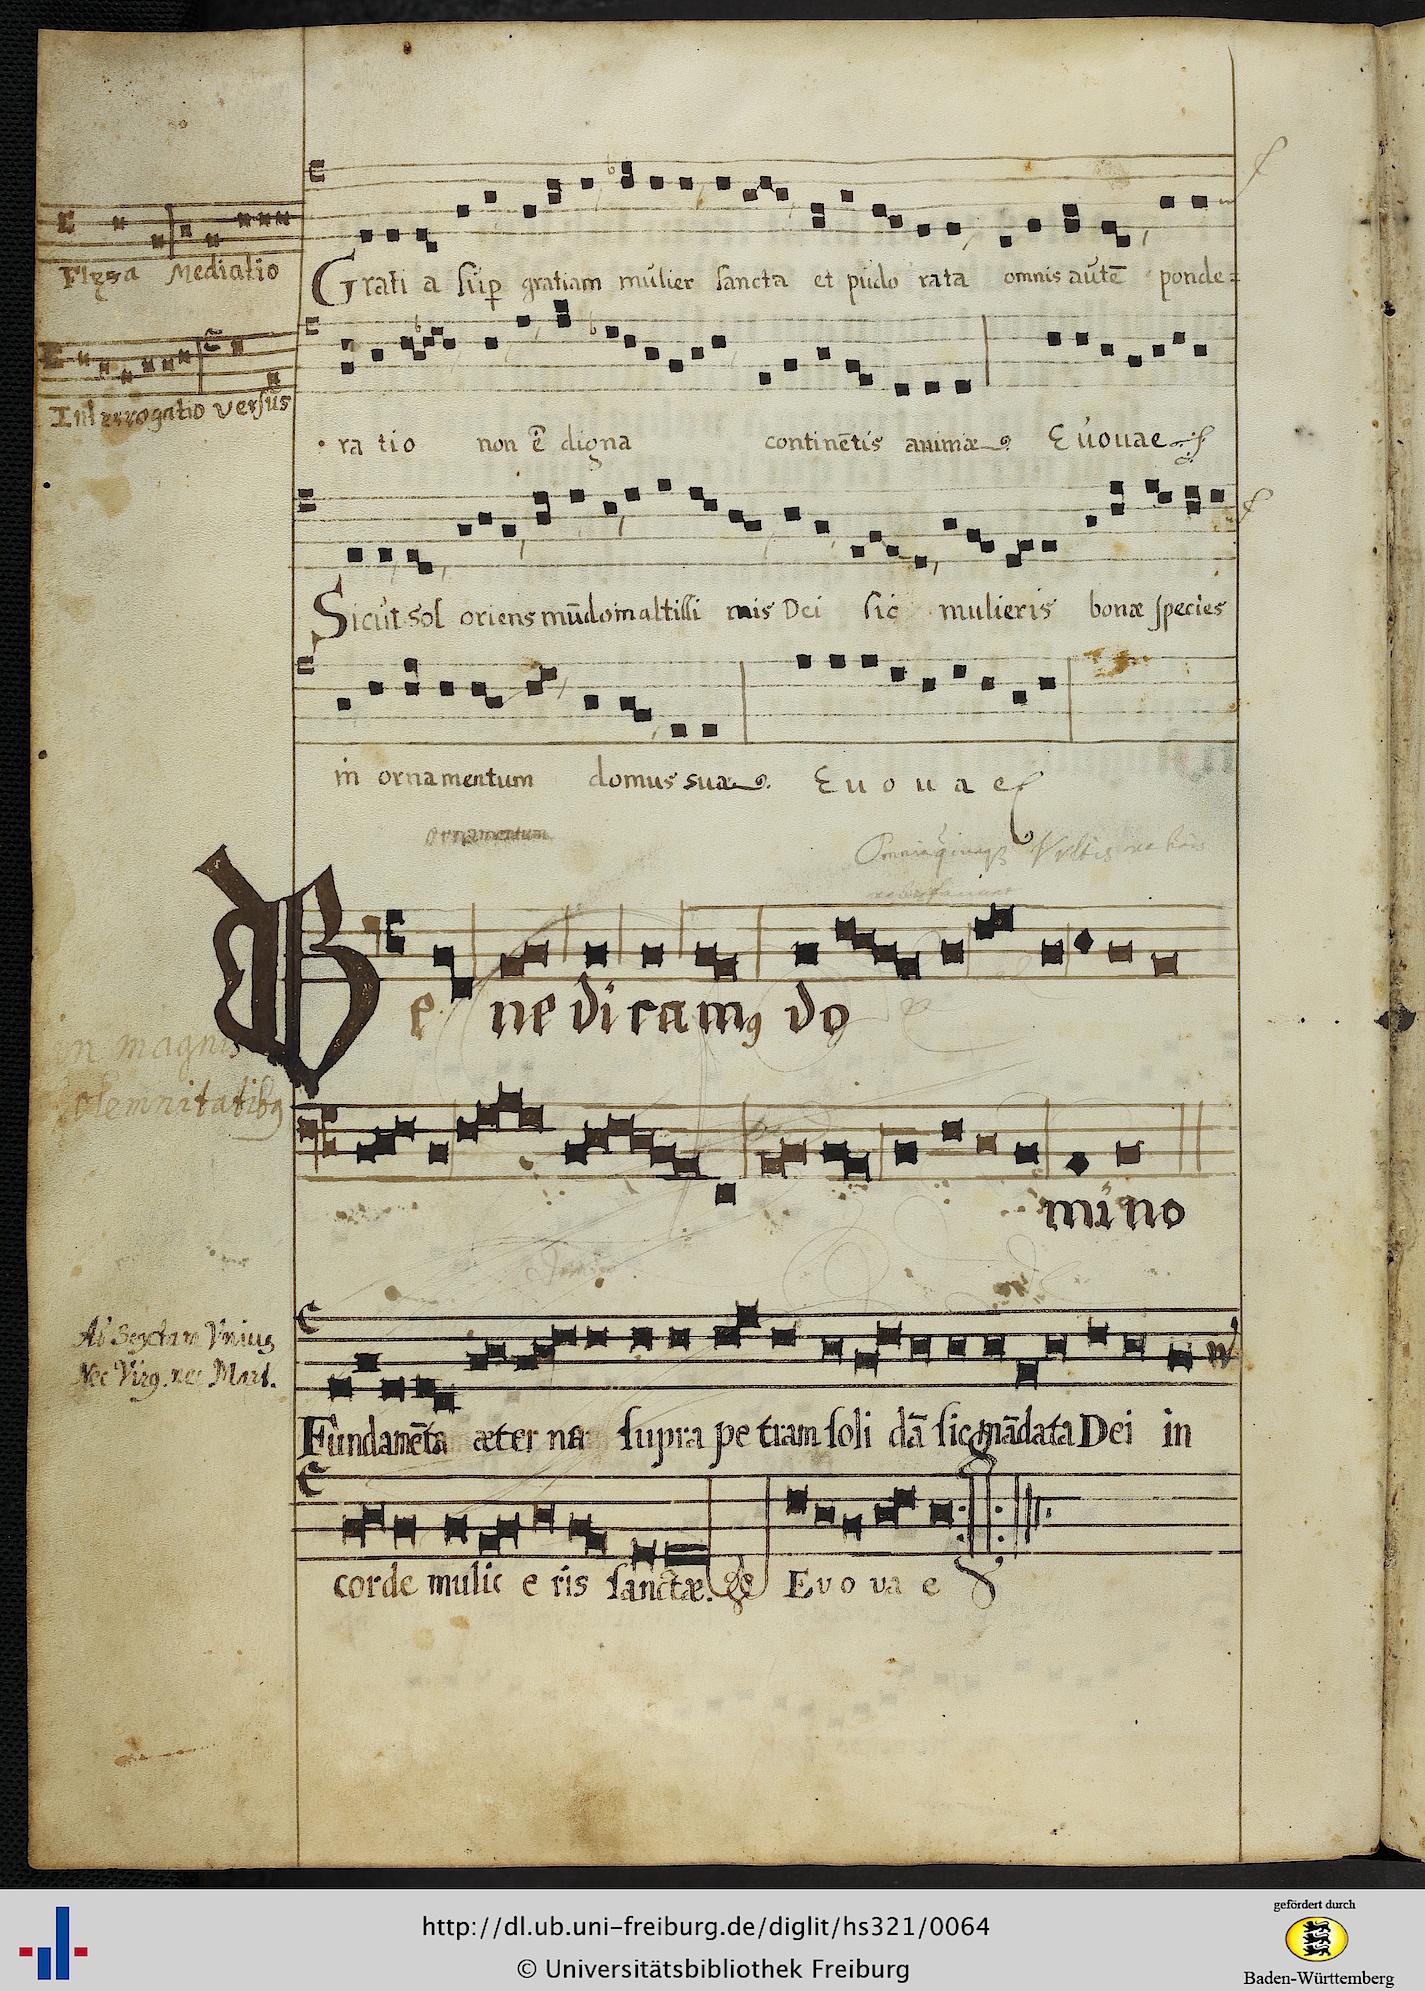 Flexa Mediatio
Interrogatio versus
Grati a sup gratiam mulier sancta et pudo rata omnis autē ponde=
ra tio non ē digna continētis animæ Euouae
Sicut sol oriens mūdo in altissi mis Dei sic mulieris bonæ species
in ornamentum domus suæ E u o u a e
ornamentum
Be ne di cam9 do
in magnis
solemnitatib9
mi no
Ad Sextam Vnius
Nec Virg. nec Mart.
Fundamēta æter na supra pe tram soli dā sic mādata Dei in
corde mulie e ris sanctæ. E v o va e
http://dl.ub.uni-freiburg.de/diglit/hs321/0064
© Universitätsbibliothek Freiburg
gefördert durch
Baden-Württemberg